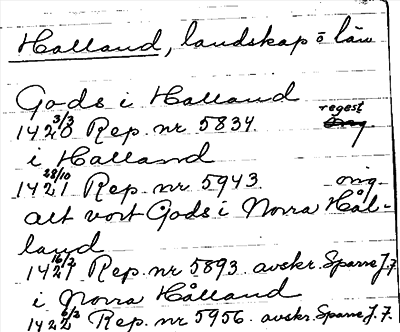 Halland, landskap o län
Gods i Halland
1420 3/3 Rep. nr 5834. regest
i Halland
1421 28/10 Rep. nr 5943. orig.
alt vort Gods i Norra Hal-
land
1421 16/2 Rep. nr 5893. avskr. Sparre J. 7.
i Norra Hålland
1422 6/2 Rep. nr 5956. avskr. Sparre J. 7.